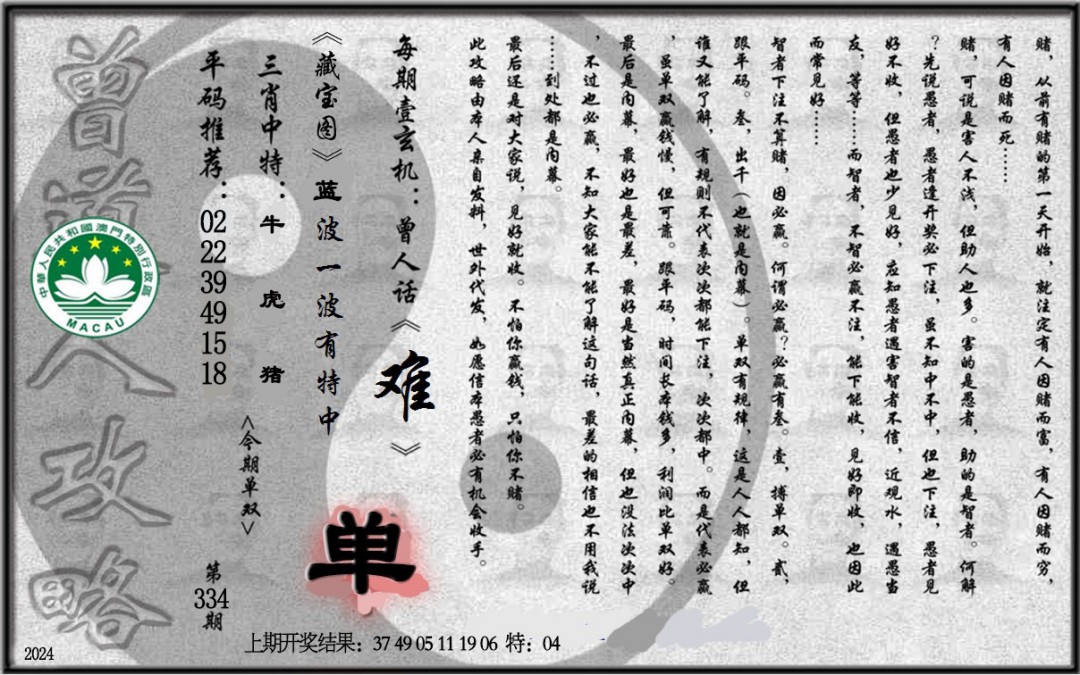 赌，从前有赌的第一天开始，就注定有人因赌而富，有人因赌而穷，
有人因赌而死……
赌，可说是害人不浅，但助人也多。害的是愚者，助的是智者。何解
？先说愚者，愚者逢开奖必下注，虽不知中不中，但也下注，愚者见
好不收，但愚者也少见好，应知愚者遇害智者不信，近观水，遇愚当
友，等等……而智者，不智必赢不注，能下能收，见好即收，也因此
而常见好……
智者下注不算赌，因必赢。何谓必赢？必赢有叁。壹，搏单双。贰，
跟平码。叁，出千（也就是内幕）。单双有规律，这是人人都知，但
谁又能了解，有规则不代表次次都能下注，次次都中。而是代表必赢
，虽单双赢钱慢，但可靠。跟平码，时间长本钱多，利润比单双好。
最后是内幕，最好也是最差，最好是当然真正内幕，但也没法次次中
，不过也必赢，不知大家能不能了解这句话，最差的相信也不用我说
……到处都是内幕。
最后还是对大家说，见好就收。不怕你赢钱，只怕你不赌。
此攻略由本人亲自发料，世外代发，如愿信本愚者必有机会收手。
每期壹玄机：曾人话《难》
《藏宝图》蓝波一波有特中
单
三肖中特：牛 虎 猪
<今期单双>
平码推荐：02 22 39 49 15 18
第334期
曾道人攻略
中華人民共和國澳門特別行政區
MACAU
上期开奖结果：37 49 05 11 19 06 特：04
2024